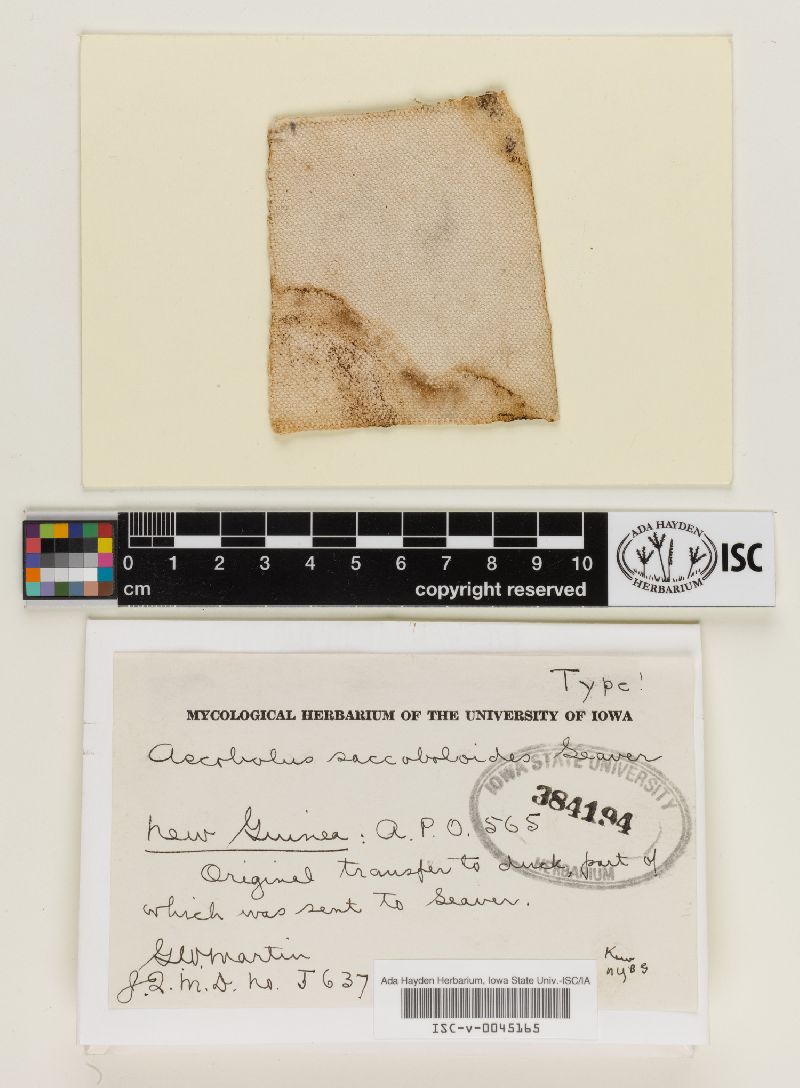 0 1 2 3 4 5 6 7 8 9 10
cm
copyright reserved
ADA HAYDEN
HERBARIUM
ISC
Type!
MYCOLOGICAL HERBARIUM OF THE UNIVERSITY OF IOWA
Ascobolus saccoboloides Seaver
IOWA STATE UNIVERSITY
384194
HERBARIUM
New Guinea: A.P.O. 565
Original transfer to duck, part of
which was sent to Seaver.
GW Martin
J.Q.M.D. no. J 637
Kew
NYBG
Ada Hayden Herbarium, Iowa State Univ.-ISC/IA
ISC-v-0045165